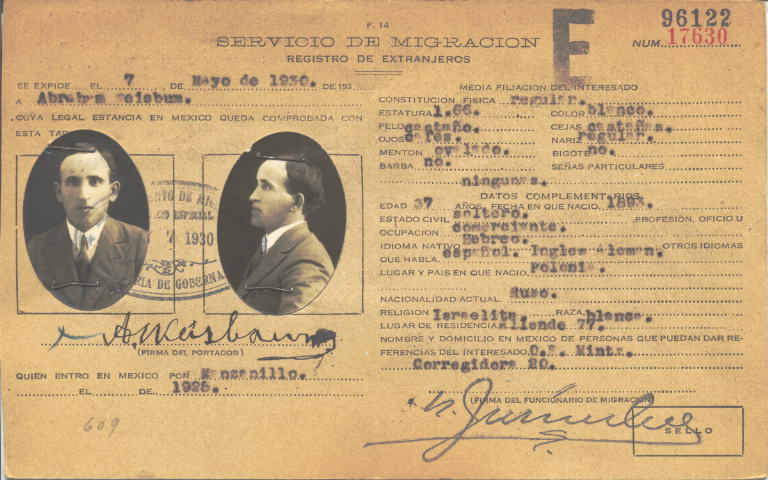 F. 14
SERVICIO DE MIGRACION
REGISTRO DE EXTRANJEROS
E
96122
NUM. 17630
SE EXPIDE EL 7 DE Mayo de 1930. DE 193
A Abraham Weisbum.
CUYA LEGAL ESTANCIA EN MEXICO QUEDA COMPROBADA CON
ESTA TAR
7 1930
RIA DE GOBERNA
A. Weisbaum
(FIRMA DEL PORTADOR)
QUIEN ENTRO EN MEXICO POR Manzanillo.
EL DE 1925.
609
MEDIA FILIACION DEL INTERESADO
CONSTITUCION FISICA regular.
ESTATURA 1.66. COLOR blanco.
PELO castaño. CEJAS castañas.
OJOS cafés. NARIZ regular.
MENTON ovalado. BIGOTE no.
BARBA no. SEÑAS PARTICULARES
ningunas.
DATOS COMPLEMENTARIOS
EDAD 37 AÑOS, FECHA EN QUE NACIO. 1893.
ESTADO CIVIL soltero. PROFESION, OFICIO U
OCUPACION comerciante.
IDIOMA NATIVO Hebreo. OTROS IDIOMAS
QUE HABLA español. Ingles Aleman.
LUGAR Y PAIS EN QUE NACIO. Polonia.
NACIONALIDAD ACTUAL. Ruso.
RELIGION Israelita. RAZA blanca.
LUGAR DE RESIDENCIA Allende 77.
NOMBRE Y DOMICILIO EN MEXICO DE PERSONAS QUE PUEDAN DAR RE-
FERENCIAS DEL INTERESADO. O.S. Mintz.
Corregidora 20.
(FIRMA DEL FUNCIONARIO DE MIGRACION)
SELLO